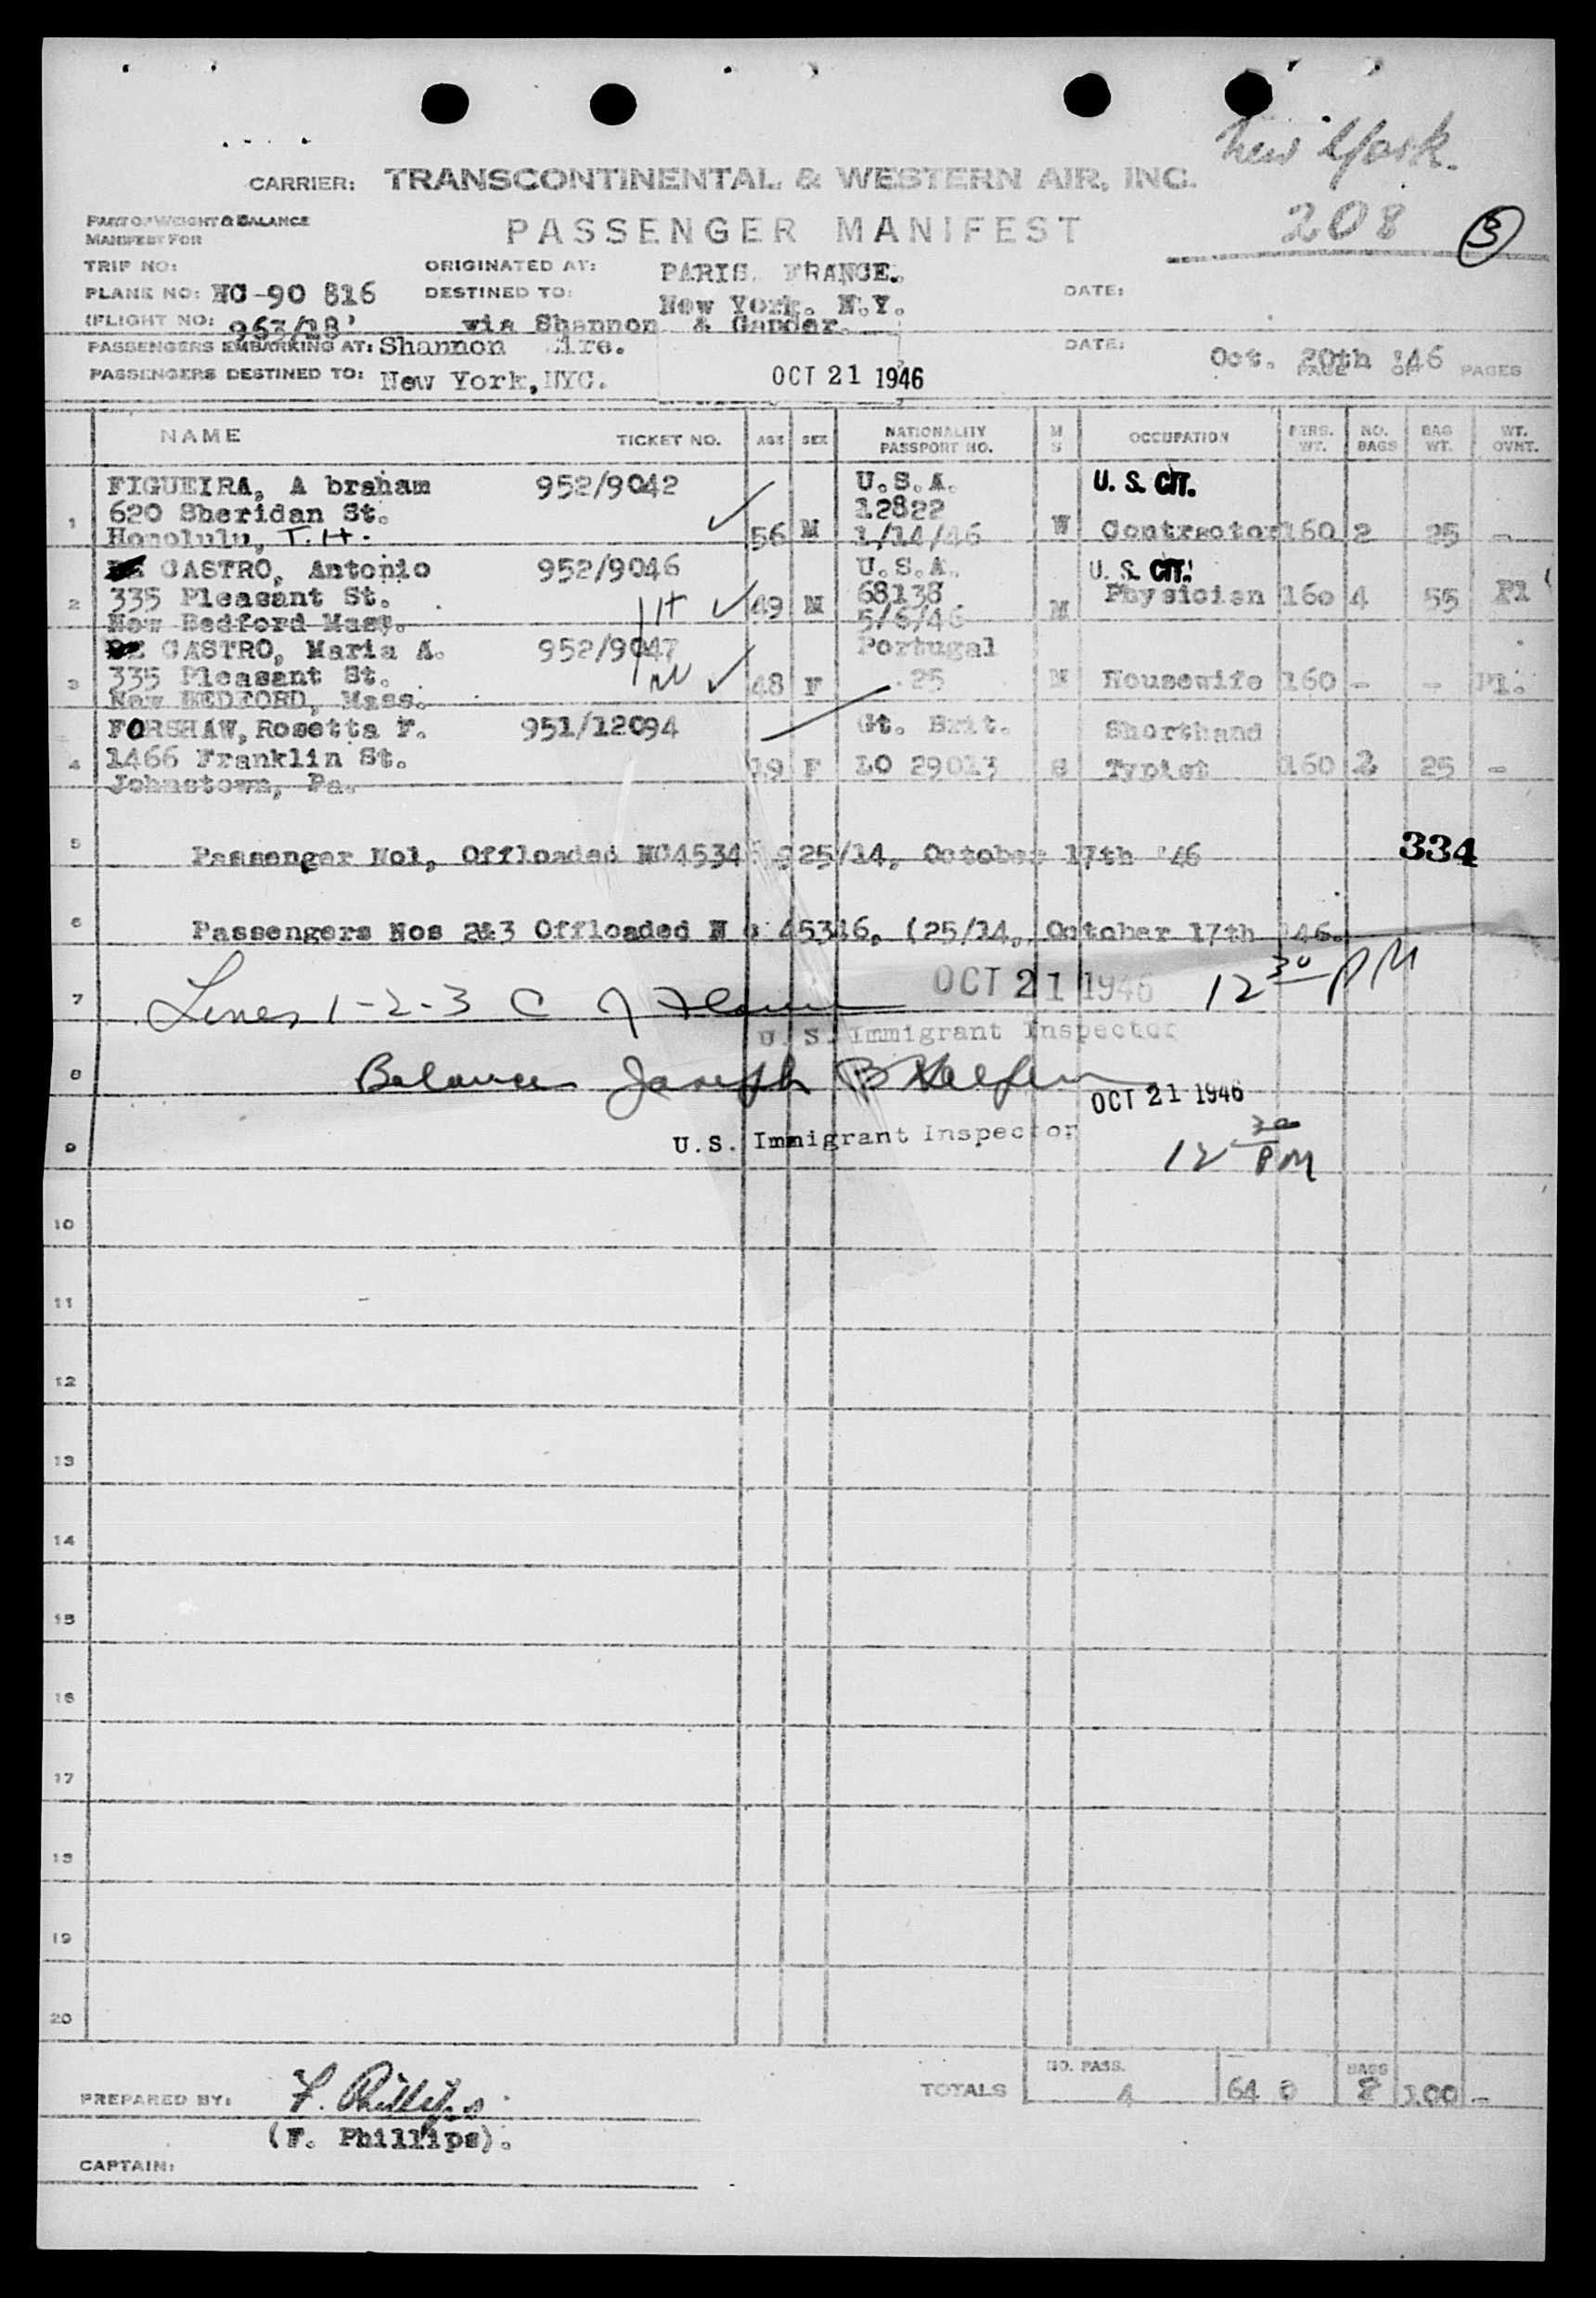 New York.
CARRIER: TRANSCONTINENTAL & WESTERN AIR, INC.
PART OF WEIGHT & BALANCE
MANIFEST FOR
PASSENGER MANIFEST
208
3
TRIP NO:
ORIGINATED AT: PARIS. FRANCE.
PLANE NO: NC-90 816
DESTINED TO: New York. N.Y.
DATE:
(FLIGHT NO: 963/18'
via Shannon & Gander.
PASSENGERS EMBARKING AT: Shannon Eire.
DATE: Oct. 20th '46
PASSENGERS DESTINED TO: New York, NYC.
OCT 21 1946
PAGE OF PAGES
NAME TICKET NO. AGE SEX NATIONALITY PASSPORT NO. M S OCCUPATION PERS. WT. NO. BAGS BAG WT. WT. OVNT.
FIGUEIRA, A braham 952/9042 U.S.A. U. S. CIT.
620 Sheridan St. 12822
1 Honolulu, T.H. 56 M 1/14/46 W Contractor 160 2 25 -
CASTRO, Antonio 952/9046 U.S.A. U. S. CIT.
2 335 Pleasant St. 1H 49 M 68138 M Physician 160 4 55 Pl
New Bedford Mass. 5/6/46
CASTRO, Maria A. 952/9047 Portugal
3 335 Pleasant St. 48 F 25 M Housewife 160 - - Pl.
New BEDFORD, Mass.
FORSHAW, Rosetta F. 951/12094 Gt. Brit. Shorthand
4 1466 Franklin St. 19 F LO 29013 S Typist 160 2 25 -
Johnstown, Pa.
5 Passenger No1, Offloaded NC4534 925/14, October 17th '46
334
6 Passengers Nos 2&3 Offloaded N C 45346, (25/14, October 17th '46.
7 Lines 1-2-3 C J
OCT 21 1946
12 30 PM
U. S. Immigrant Inspector
8 Balance Joseph B
OCT 21 1946
9 U.S. Immigrant Inspector
12 30 PM
10
11
12
13
14
15
16
17
18
19
20
TOTALS NO. PASS. 4 64 0 BAGS 8 100 -
PREPARED BY: F. Phillips
(F. Phillips).
CAPTAIN: